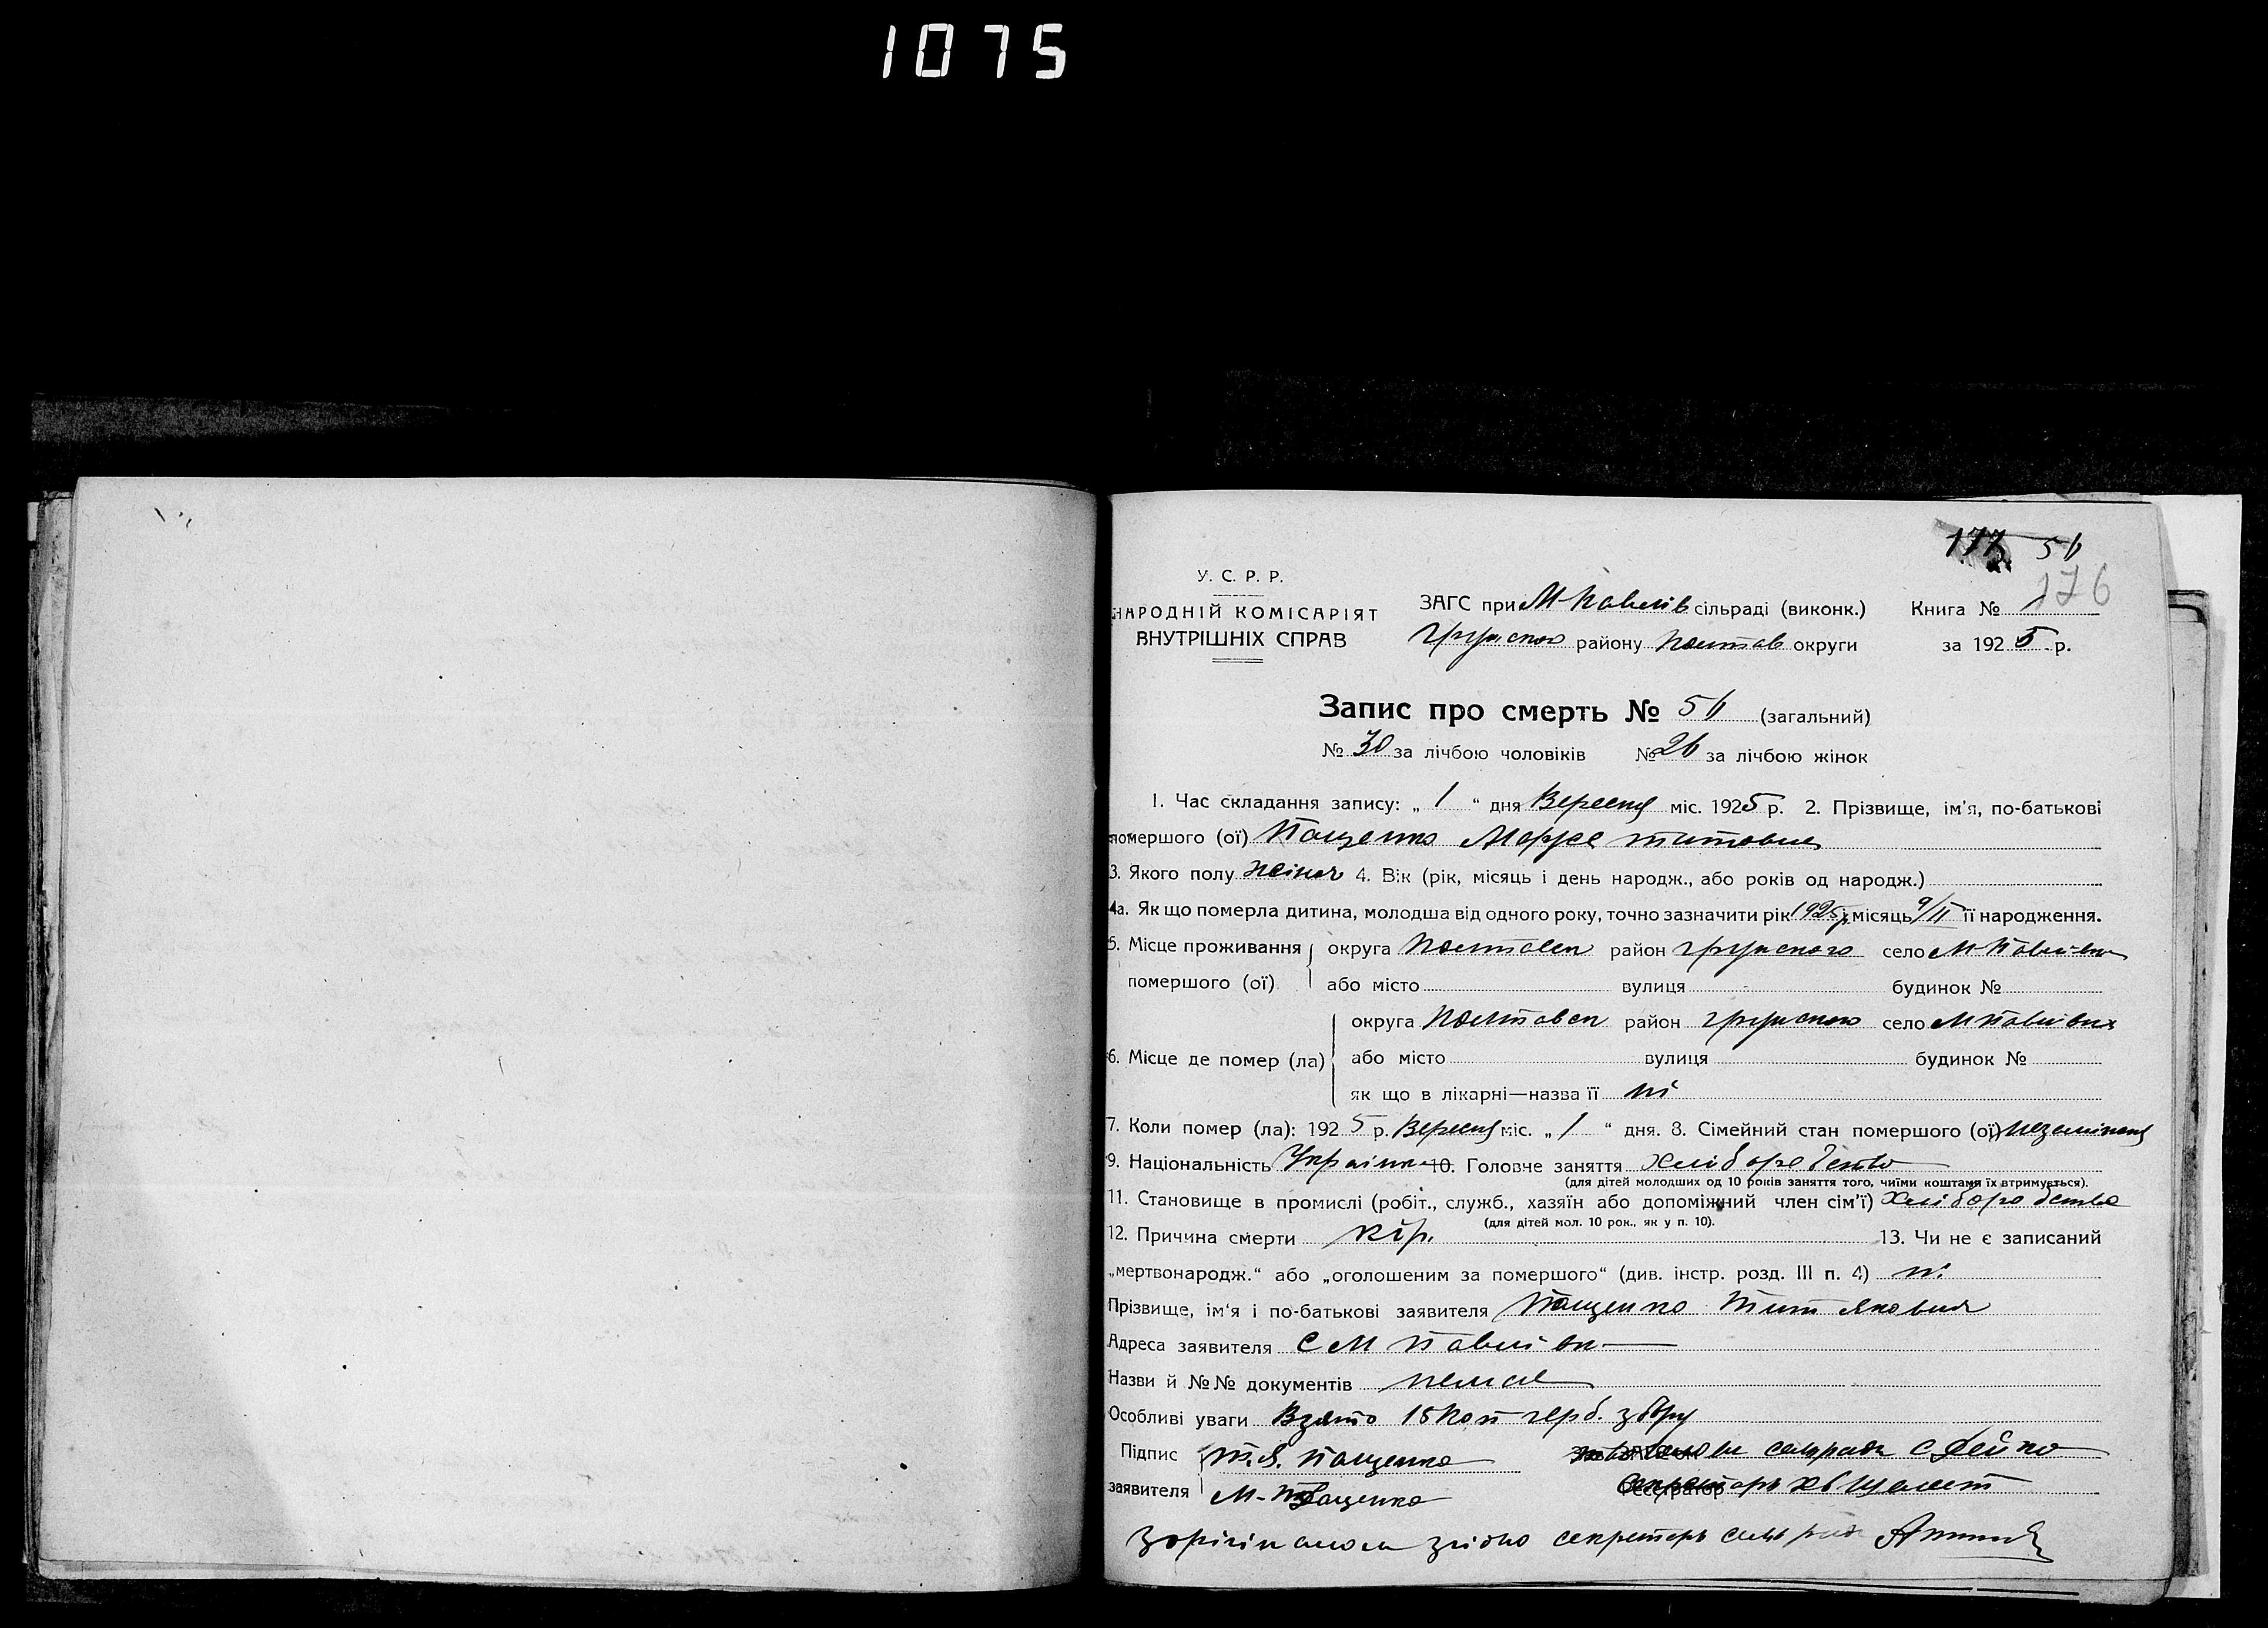 1075
177 56
176
У. С. Р. Р.
НАРОДНІЙ КОМІСАРІЯТ
ВНУТРІШНІХ СПРАВ
ЗАГС при М-Павлів сільраді (виконк.) Книга №
району Полтав округи за 1925 р.
Запис про смерть № 56 (загальний)
№ 30 за лічбою чоловіків № 26 за лічбою жінок
1. Час складання запису: „ 1 “ дня Вересня міс. 1925 р. 2. Прізвище, ім'я, по-батькові
помершого (ої) Пащенко Маруся Титовна
3. Якого полу жіноч 4. Вік (рік, місяць і день народж., або років од народж.)
4а. Як що померла дитина, молодша від одного року, точно зазначити рік 1925 р. місяць 9/II її народження.
5. Місце проживання округа Полтавск район село М-Павлівка
помершого (ої) або місто вулиця будинок №
округа Полтавск район село М Павлівка
6. Місце де помер (ла) або місто вулиця будинок №
як що в лікарні—назва її ні
7. Коли помер (ла): 1925 р. Вересня міс. „ 1 “ дня. 8. Сімейний стан помершого (ої)
9. Національність Українка 10. Головче заняття хліборобство
(для дітей молодших од 10 років заняття того, чиїми коштами їх втримується).
11. Становище в промислі (робіт., служб., хазяїн або допоміжний член сім'ї) хліборобство
(для дітей мол. 10 рок., як у п. 10).
12. Причина смерти кір. 13. Чи не є записаний
„мертвонародж.“ або „оголошеним за помершого“ (див. інстр. розд. III п. 4) ні
Прізвище, ім'я і по-батькові заявителя Пащенко Тит Якович
Адреса заявителя С М Павлівк
Назви й №№ документів немає
Особливі уваги Взято 15 коп герб. збору
Підпис Т. Я. Пащенко Голова сільради С Дейко
заявителя М-Пащенко Секретарь
Зорігіналом згідно секретарь сільрад